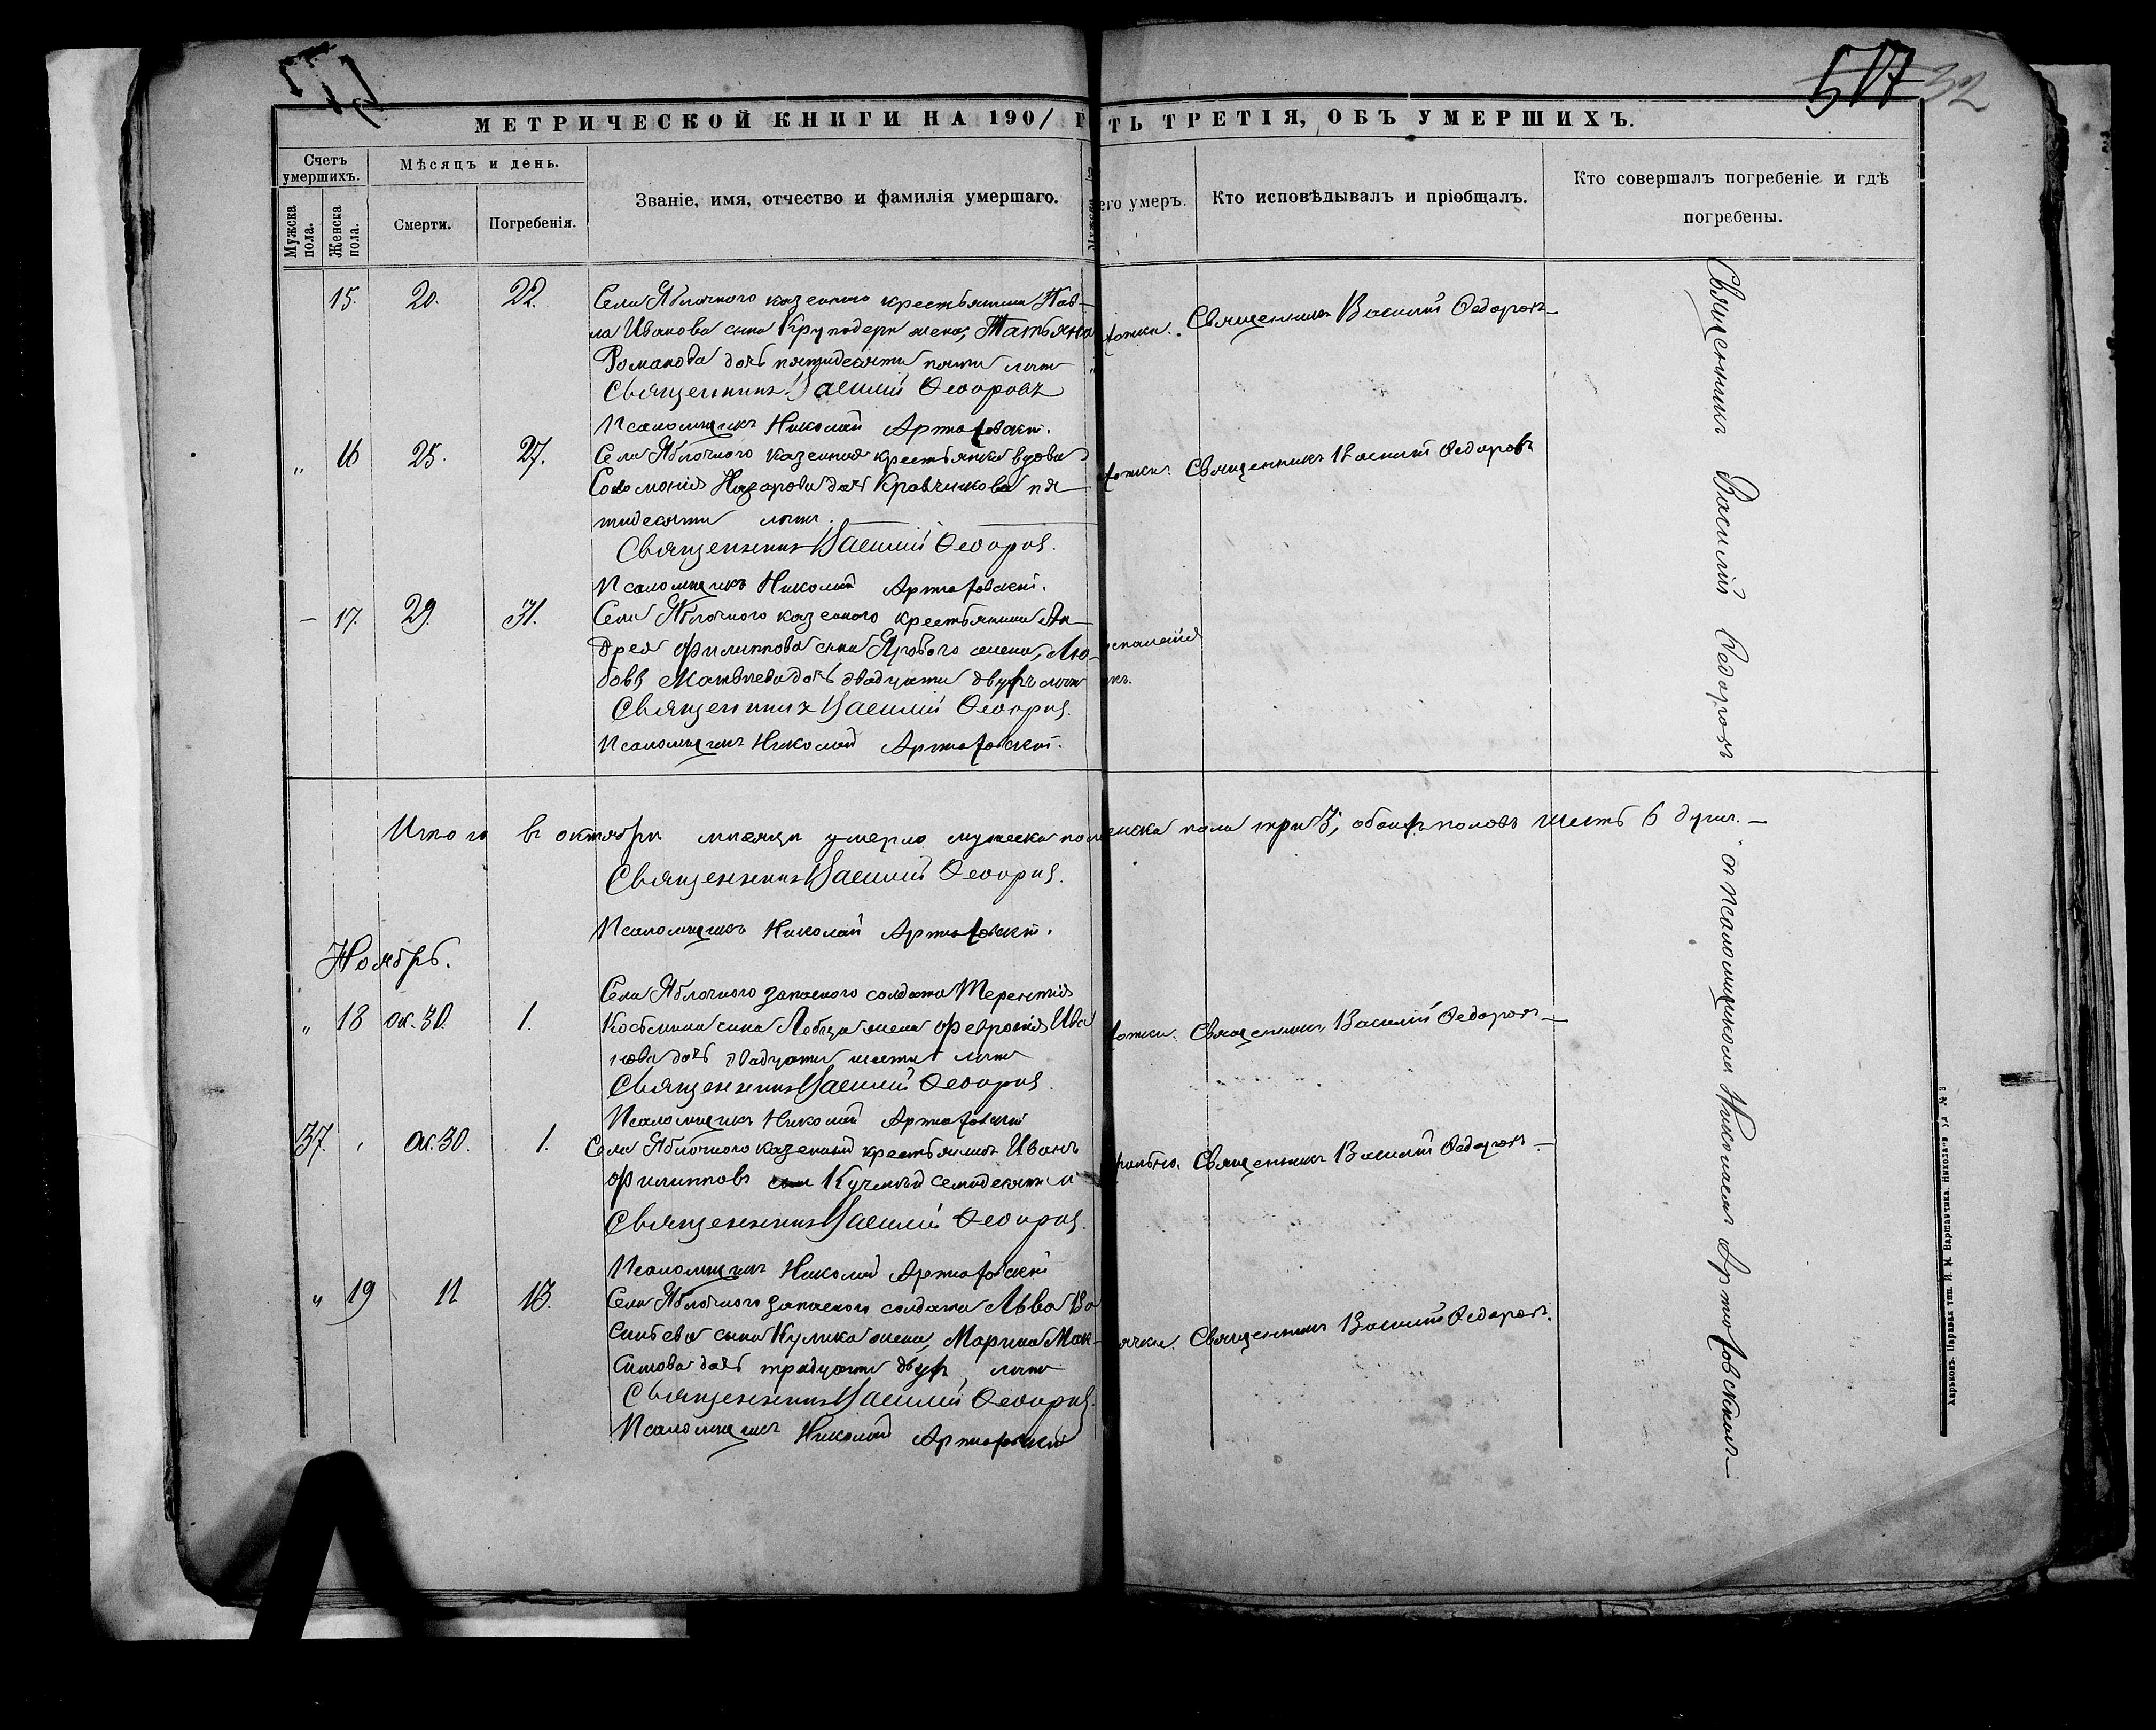 517 32
МЕТРИЧЕСКОЙ КНИГИ НА 1901 Г
ТЬ ТРЕТІЯ, ОБЪ УМЕРШИХЪ.
Счетъ умершихъ.
Мужска пола.
Женска пола.
Мѣсяцъ и день.
Смерти.
Погребенія.
Званіе, имя, отчество и фамилія умершаго.
его умеръ.
Кто исповѣдывалъ и пріобщалъ.
Кто совершалъ погребеніе и гдѣ
погребены.
15. 20. 22. Села Яблочного казенного крестьянина Пав-
ла Иванова сына Круподери жена, Татьяна
Романова дочь пятидесяти пяти лѣтъ
Священникъ Василий Ѳеодоровъ
Псаломщикъ Николай Артюховскій.
хотки. Священникъ Василій Ѳедоровъ
„ 16 25. 27. Села Яблочного казенная крестьянка вдова
Соломонія Назарова дочь Кравчикова пя-
тидесяти лѣтъ.
Священникъ Василий Ѳеодоровъ.
Псаломщикъ Николай Артюховскій.
хотки. Священникъ Василий Ѳедоровъ
— 17. 29. 31. Села Яблочного казенного крестьянина Ан-
дрея Филиппова сына Ярового жена, Лю-
бовь Матвѣева дочь двадцати двухъ лѣтъ
Священникъ Василий Ѳеодоровъ.
Псаломщикъ Николай Артюховскій.
Итого въ октябрѣ мѣсяцѣ умерло мужеска пол
енска пола три 3, обоихъ половъ шесть 6 душъ. —
Священникъ Василий Ѳеодоровъ.
Псаломщикъ Николай Артюховскій.
Ноябрь.
„ 18 ок. 30. 1. Села Яблочного запасного солдата Терентія
Косьмина сына Лобцы жена Февронія Ива
нова дочь двадцати шести лѣтъ
Священникъ Василий Ѳеодоровъ.
Псаломщикъ Николай Артюховскій
хотки. Священникъ Василій Ѳедоровъ —
37. ок. 30. 1. Села Яблочного казенный крестьянинъ Иванъ
Филипповъ Кучмый семидесяти л
Священникъ Василий Ѳеодоровъ.
Псаломщикъ Николай Артюховскій
Священникъ Василій Ѳедоровъ —
„ 19 11 13. Села Яблочного запасного солдата Льва Ва
сильева сына Кулика жена, Марина Мак-
симова дочь тридцати двухъ лѣтъ
Священникъ Василий Ѳеодоровъ.
Псаломщикъ Николай Артюховскій
ячки. Священникъ Василій Ѳедоровъ.
Священникъ Василій Ѳедоровъ съ псаломщикомъ Николаемъ Артюховскимъ —
Харьковъ. Паровая тип. И. М. Варшавчика. Николаев. ул. № 3